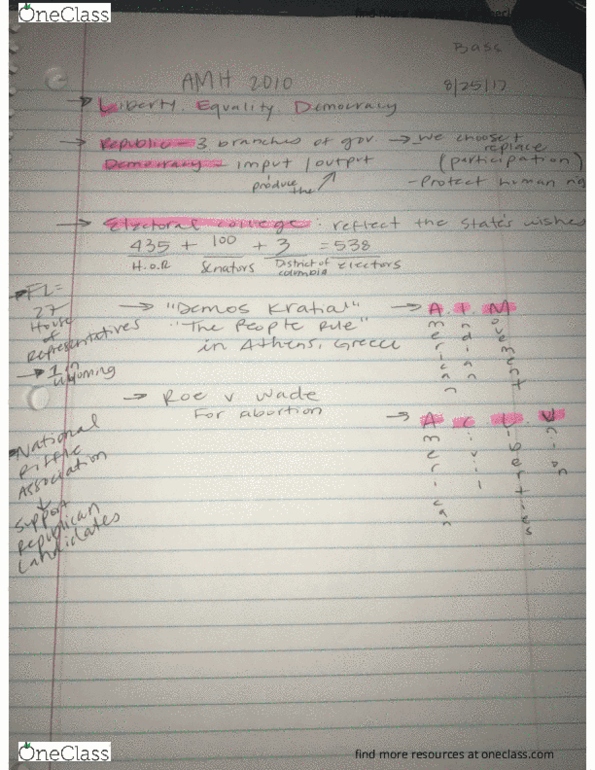 OneClass
find more
Bass
AMH 2010
8/25/17
→ Liberty. Equality. Democracy
→ Republic – 3 branches of gov. → we choose + replace
Democracy – imput / output (participation)
produce the
- Protect human rig
→ Electoral college : reflect the state's wishes
435 + 100 + 3 = 538
H.O.R Senators District of columbia electors
→ FL =
27
House
of
Representatives
→ 1 in
wyoming
→ "Demos Kratia"
"The People Rule"
in Athens, Greece
→ A. I. M
American Indian Movement
→ Roe v Wade
For abortion
→ A C L U
American Civil Libertives Union
National
Riffle
Association
↓
Support
Republican
Candidates
OneClass
find more resources at oneclass.com